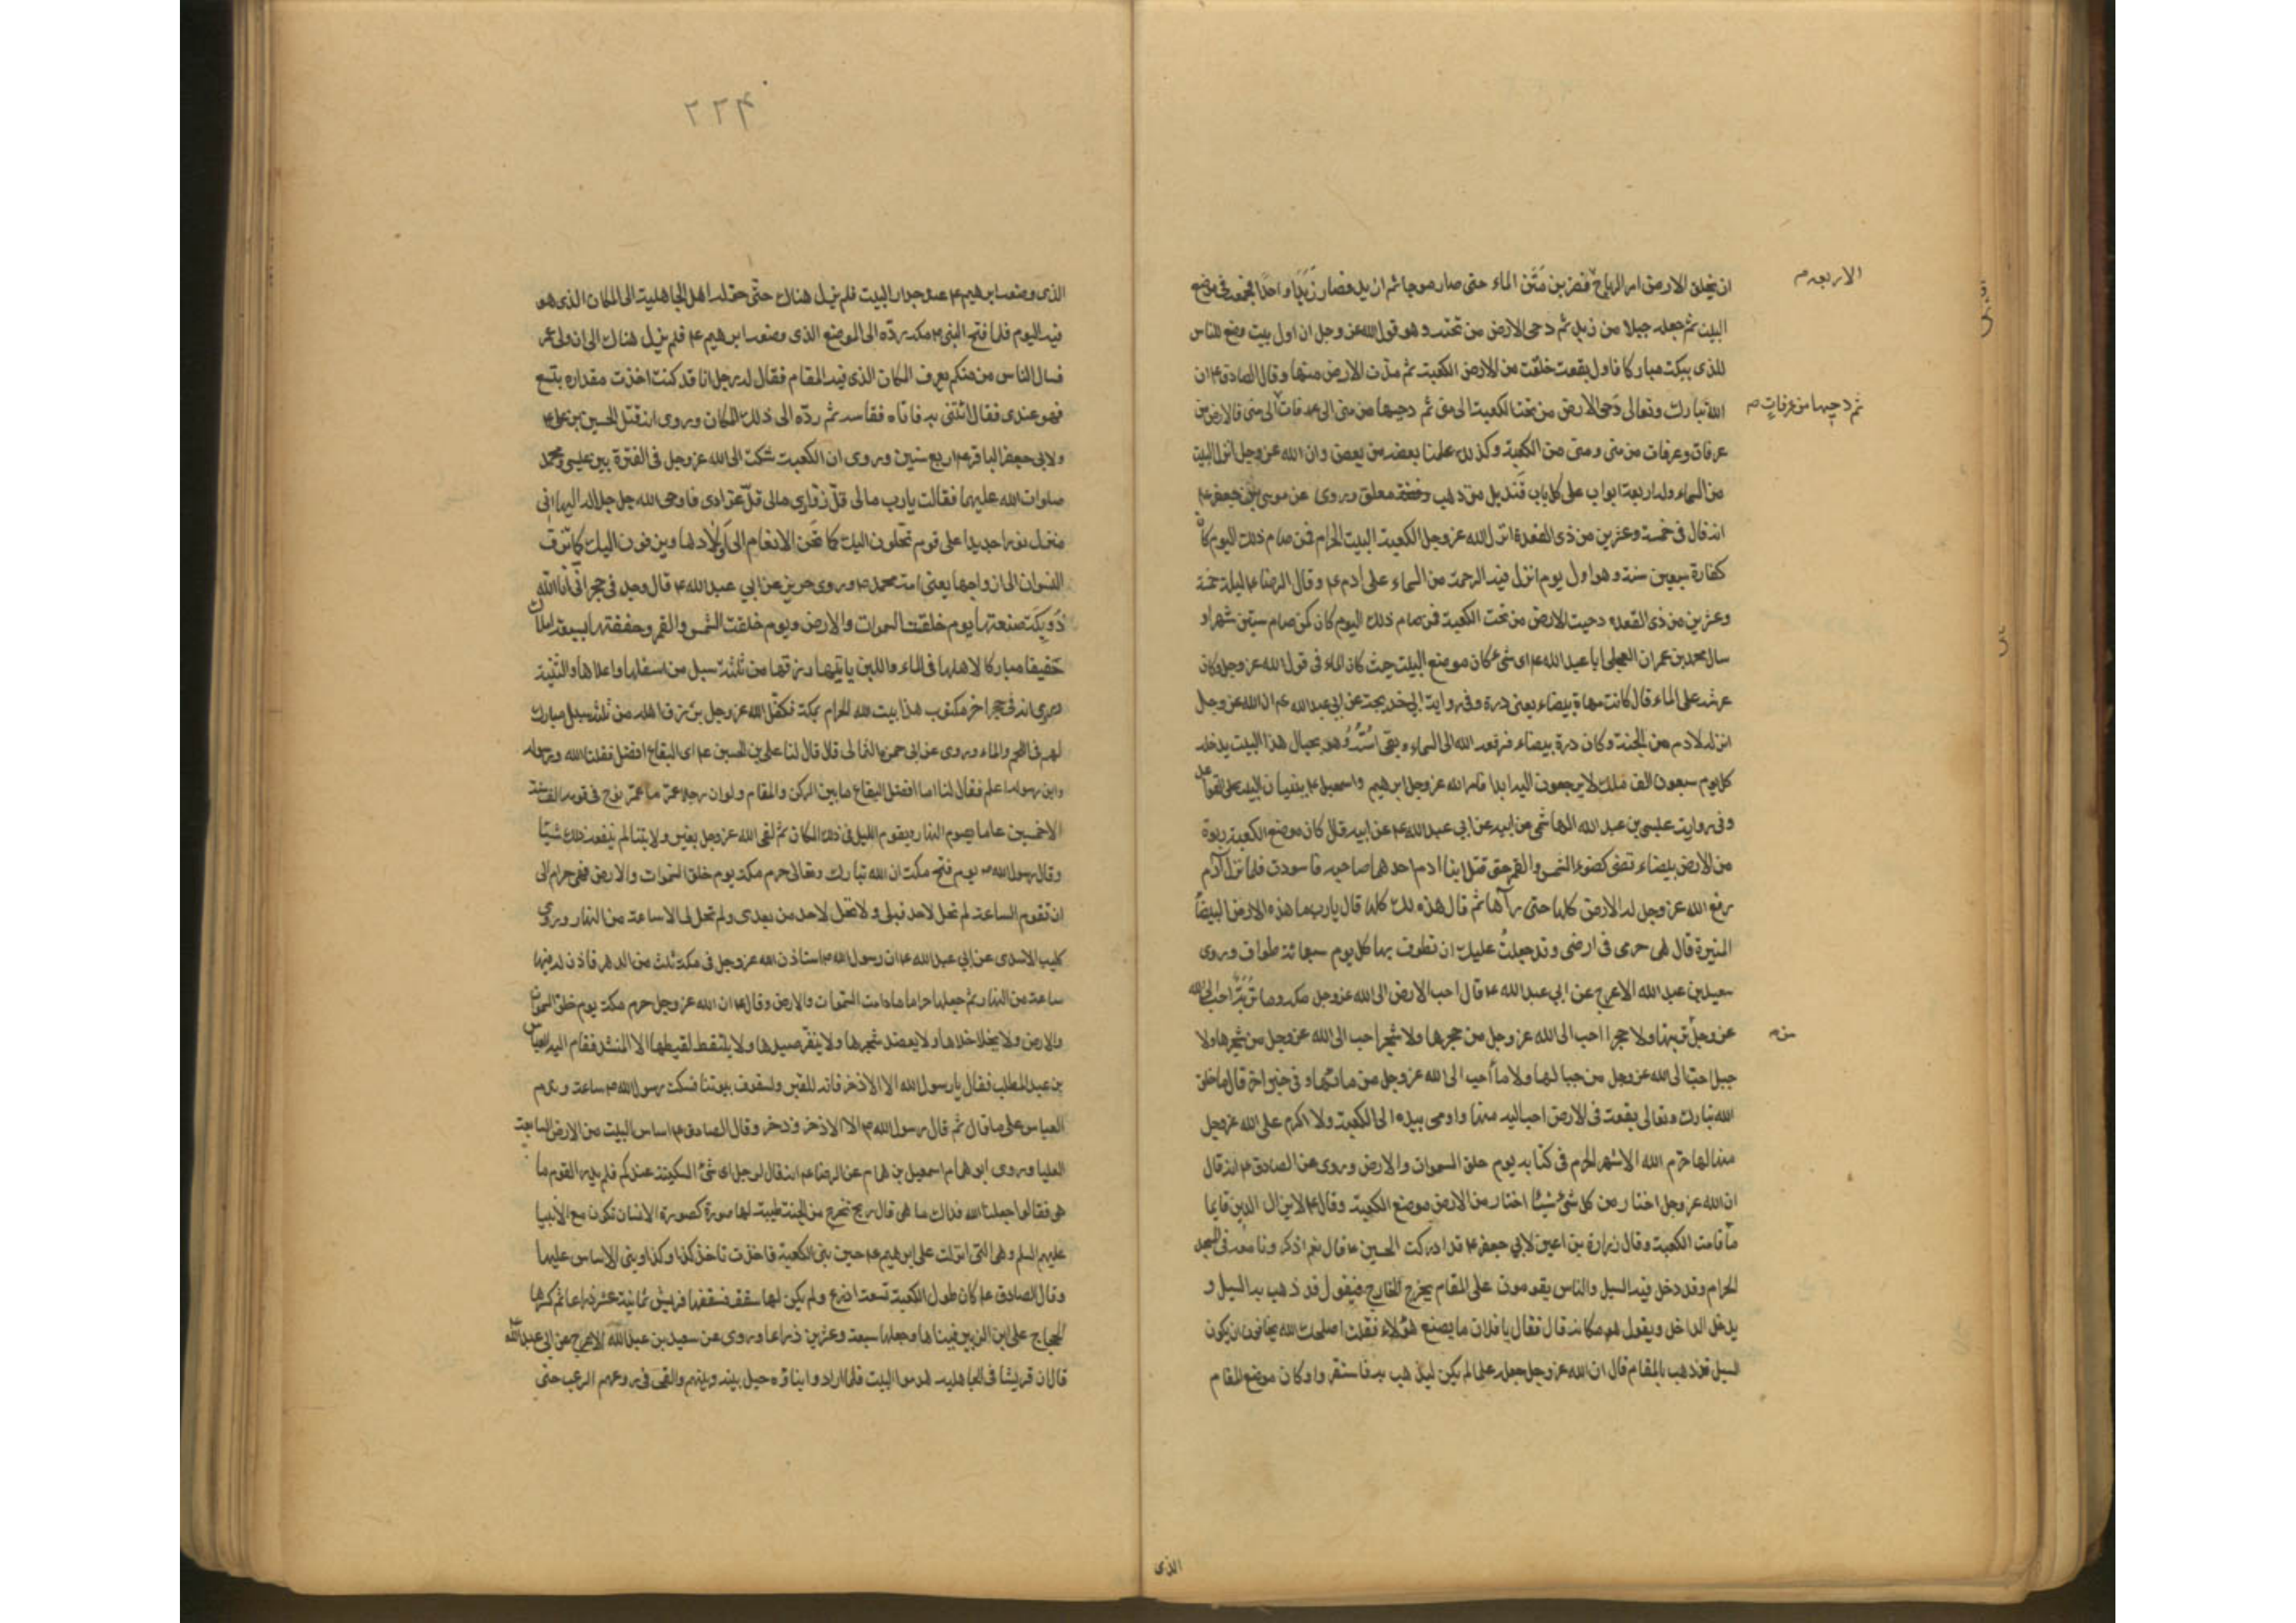 ان يخلق الارض امر الرياح فضربن مَتْن الماء حتى صار موجا ثم ازبد فصار زَبَدًا واحدًا فجمعه في موضع
الاربعه م
البيت ثم جعله جبلا من زبد ثم دحى الارض من تحته وهو قول الله عز وجل ان اول بيت وضع للناس
للذى ببكة مباركا فاول بقعة خلقت من الارض الكعبة ثم مدّت الارض منها وقال الصادق ع ان
الله تبارك وتعالى دَحَى الارض من تحت الكعبة الى منى ثم دحيها من منى الى عرفات الى منى فالارض من
ثم دحيها من عرفات م
عرفات وعرفات من منى ومنى من الكعبة وكذلك علمنا بعضه من بعض وان الله عز وجل انزل البيت
من السماء وله اربعة ابواب على كل باب قنديل من ذهب معلق وروى عن موسى بن جعفر ع
انه قال فى خمسة وعشرين من ذى القعدة انزل الله عز وجل الكعبة البيت الحرام فمن صام ذلك اليوم كان
كفارة سبعين سنة وهو اول يوم انزل فيه الرحمة من السماء على ادم ع وقال الرضا ع ليلة خمسة
وعشرين من ذى القعده دحيت الارض من تحت الكعبة فمن صام ذلك اليوم كان كمن صام ستين شهرا و
سال محمد بن عمران العجلى ابا عبد الله ع اى شئ كان موضع البيت حيث كان الماء فى قول الله عز وجل وكان
عرشه على الماء قال كانت مهاة بيضاء يعنى درة وفى رواية ابى خديجة عن ابى عبد الله ع ان الله عز وجل
انزله لادم من الجنة وكان درة بيضاء فرفعه الله الى السماء وبقى اُسّه وهو بحيال هذا البيت يدخله
كل يوم سبعون الف ملك لا يرجعون اليه ابدا فامر الله عز وجل ابرهيم واسمعيل ع ببنيان البيت على القواعد
وفى رواية عيسى بن عبد الله الهاشمى عن ابيه عن ابى عبد الله ع عن ابيه قال كان موضع الكعبة ربوة
من الارض بيضاء تضئ كضوء الشمس والقمر حتى قتل ابنا ادم احدهما صاحبه فاسودت فلما نزل آدم
رفع الله عز وجل له الارض كلها حتى رآها ثم قال هذه لك كلها قال يارب ما هذه الارض البيضاء
المنيرة قال هى حرمى فى ارضى وقد جعلتُ عليك ان تطوف بها كل يوم سبعمائة طواف وروى
سعيد بن عبد الله الاعرج عن ابى عبد الله ع قال احب الارض الى الله عز وجل مكه وما تربة احب الى الله
عز وجل من تربتها ولا حجرا احب الى الله عز وجل من حجرها ولا شجرا احب الى الله عز وجل من شجرها ولا
جبل احبّ الى الله عز وجل من جبالها ولا ماء احب الى الله عز وجل من مائها و فى خبر اخر قال ما خلق
الله تبارك وتعالى بقعة فى الارض احب اليه منها واومى بيده الى الكعبة ولا اكرم على الله عز وجل
منها لها حرّم الله الاشهر الحرم فى كتابه يوم خلق السموات والارض وروى عن الصادق ع انه قال
ان الله عز وجل اختار من كل شئ شيئا اختار من الارض موضع الكعبة وقال ع لا يزال الدين قايما
ما قامت الكعبة وقال زرارة بن اعين لابى جعفر ع قد ادركت الحسين ع قال نعم اذكر وانا معه فى المسجد
الحرام وقد دخل فيه السيل والناس يقومون على المقام يخرج الخارج فيقول قد ذهب به السيل و
يدخل الداخل ويقول هو مكانه قال فقال يا فلان ما يصنع هؤلاء فقلت اصلحك الله يخافون ان يكون
السيل قد ذهب بالمقام قال ان الله عز وجل جعله علما لم يكن ليذهب به فاستقروا وكان موضع المقام
الذى
٢٢٤
الذى وضعه ابرهيم ع عند جدار البيت فلم يزل هناك حتّى حوّله اهل الجاهلية الى المكان الذى هو
فيه اليوم فلما فتح النبى ص مكه ردّه الى الموضع الذى وضعه ابرهيم ع فلم يزل هناك الى ان ولى عمر
فسال الناس من منكم يعرف المكان الذى فيه المقام فقال له رجل انا قد كنت اخذت مقداره بنسع
فهو عندى فقال ائتنى به فاتاه فقاسه ثم ردّه الى ذلك المكان وروى انه قتل الحسين بن على ع
ولابى جعفر الباقر ع اربع سنين وروى ان الكعبة شكت الى الله عز وجل فى الفترة بين عيسى ومحمد
صلوات الله عليهما فقالت يارب مالى قلّ زوّارى مالى قلّ عوّادى فاوحى الله جل جلاله اليها انى
منزل نورا جديدا على قوم يحنّون اليك كما تحن الانعام الى اولادها ويزفون اليك كما تزف
النسوان الى ازواجها يعنى امة محمد ص وروى حريز عن ابى عبد الله ع قال وجد فى حجر انّى انا الله
ذو بكّة صنعتها يوم خلقت السموات والارض ويوم خلقت الشمس والقمر وحففتها بسبعة املاك
حفيفا مباركا لاهلها فى الماء واللبن ياتيها رزقها من ثلثة سبل من اسفلها واعلاها والثنية
وروى انه فى حجر اخر مكتوب هذا بيت الله الحرام بمكة تكفّل الله عز وجل برزق اهله من ثلثة سبل مبارك
لهم فى اللحم والماء وروى عن ابى حمزة الثمالى قال قال لنا على بن الحسين ع اى البقاع افضل فقلنا الله ورسوله
وابن رسوله اعلم فقال لنا اما افضل البقاع ما بين الركن والمقام ولو ان رجلا عمّر ما عمّر نوح فى قومه الف سنة
الا خمسين عاما يصوم النهار ويقوم الليل فى ذلك المكان ثم لقى الله عز وجل بغير ولايتنا لم ينفعه ذلك شيئا
وقال رسول الله ص يوم فتح مكة ان الله تبارك وتعالى حرم مكة يوم خلق السموات والارض فهى حرام الى
ان تقوم الساعة لم تحل لاحد قبلى ولا تحل لاحد من بعدى ولم تحل لى الا ساعة من النهار وروى
كليب الاسدى عن ابى عبد الله ع ان رسول الله ص استاذن الله عز وجل فى مكة ثلث من الدهر فاذن له فيها
ساعة من النهار ثم جعلها حراما ما دامت السموات والارض وقال ع ان الله عز وجل حرم مكة يوم خلق السموات
والارض ولا يختلا خلاها ولا يعضد شجرها ولا ينفّر صيدها ولا يلتقط لقيطها الا المنشد فقام اليه العباس
بن عبد المطلب فقال يا رسول الله الا الاذخر فانه للقبر ولسقوف بيوتنا فسكت رسول الله ص ساعة وندم
العباس على ما قال ثم قال رسول الله ص الا الاذخر وقال الصادق ع اساس البيت من الارض السابعة
العليا وروى ابو همام اسمعيل بن همام عن الرضا ع انه قال لرجل اى شئ السكينة عندكم فلم يدر القوم ما
هى فقالوا جعلنا الله فداك ما هى قال ريح تخرج من الجنة طيبة لها صورة كصورة الانسان تكون مع الانبيا
عليهم السلم وهى التى انزلت على ابرهيم ع حين بنى الكعبة فاخذت تاخذ كذا وكذا وبنى الاساس عليها
وقال الصادق ع كان طول الكعبة تسعة اذرع ولم يكن لها سقف فسقفها قريش ثمانية عشر ذراعا ثم كسرها
الحجاج على ابن الزبير فبناها وجعلها سبعة وعشرين ذراعا وروى عن سعيد بن عبد الله الاعرج عن ابى عبد الله
قال ان قريشا فى الجاهلية هدموا البيت فلما ارادوا بناؤه حيل بينه وبينهم والقى فى روعهم الرعب حتى